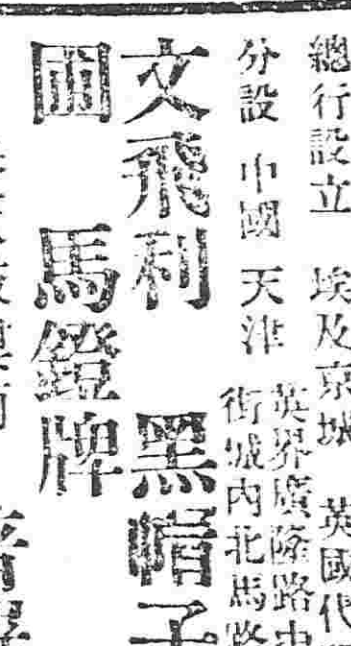 總行設立 埃及京城 英國代
分設 中國 天津 英界廣隆路中
街城內北馬路
文飛利 黑帽子
圖 馬鐙牌